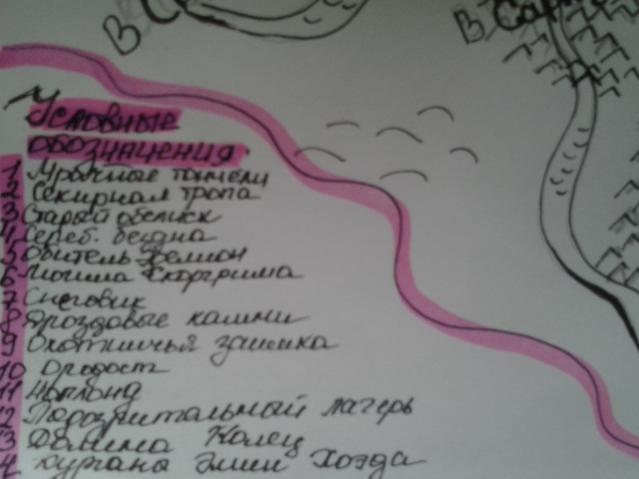 В
В
Условные
обозначения
1 Мрачные тоннели
2 Секирная тропа
3 Старый обелиск
4 Сереб. бездна
5 Обитель Фелион
6 Могила Скоргрима
7 Снеговик
8 Дроздовые камни
9 Охотничья заимка
10 Ородост
11
12 Подозрительный лагерь
3 Колец
4 кургана Эмин Хоэда